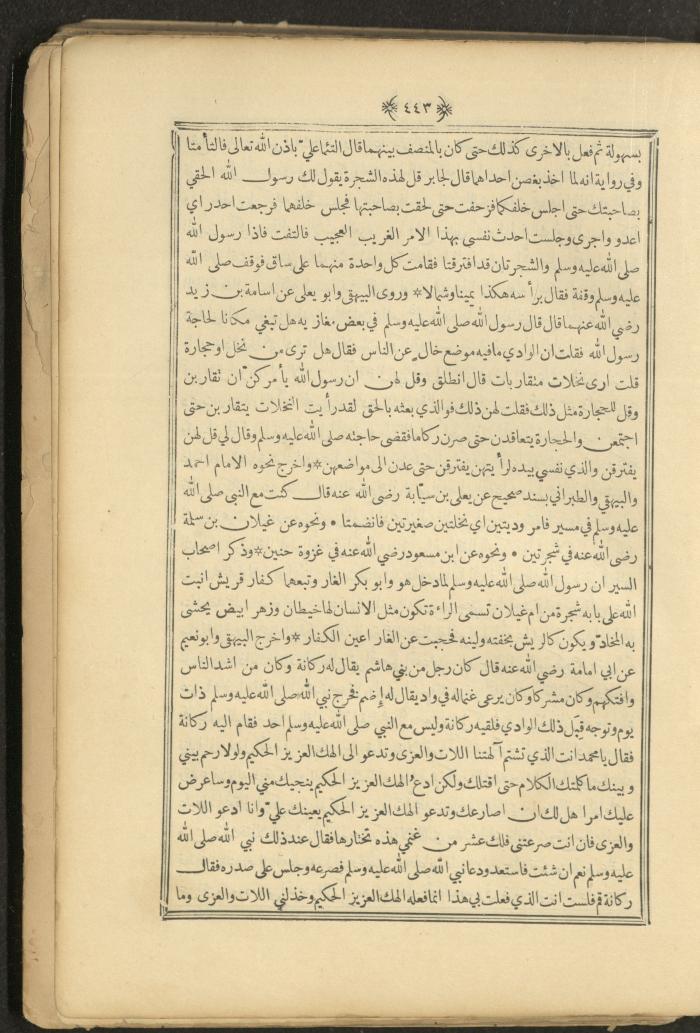 ٤٤٣
بسهولة ثم فعل بالاخرى كذلك حتى كان بالمنصف بينهما قال التئما عليّ باذن الله تعالى فالتأمتا
وفي رواية انه لما اخذ بغصن احداهما قال لجابر قل لهذه الشجرة يقول لك رسول الله الحقي
بصاحبتك حتى اجلس خلفكما فزحفت حتى لحقت بصاحبتها فجلس خلفهما فرجعت احدر اي
اعدو واجرى وجلست احدث نفسي بهذا الامر الغريب العجيب فالتفت فاذا رسول الله
صلى الله عليه وسلم والشجرتان قد افترقتا فقامت كل واحدة منهما على ساق فوقف صلى الله
عليه وسلم وقفة فقال برأسه هكذا يمينا وشمالا * وروى البيهقي وابو يعلى عن اسامة بن زيد
رضي الله عنهما قال قال رسول الله صلى الله عليه وسلم في بعض مغازيه هل تبغي مكانا لحاجة
رسول الله فقلت ان الوادي ما فيه موضع خال عن الناس فقال هل ترى من نخل او حجارة
قلت ارى نخلات متقاربات قال انطلق وقل لهن ان رسول الله يأمركنّ ان تقاربن
وقل للحجارة مثل ذلك فقلت لهن ذلك فوالذي بعثه بالحق لقد رأيت النخلات يتقاربن حتى
اجتمعن والحجارة يتعاقدن حتى صرن ركاما فقضى حاجته صلى الله عليه وسلم وقال لي قل لهن
يفترقن والذي نفسي بيده لرأيتهن يفترقن حتى عدن الى مواضعهن * واخرج نحوه الامام احمد
والبيهقي والطبراني بسند صحيح عن يعلى بن سيّابة رضي الله عنه قال كنت مع النبي صلى الله
عليه وسلم في مسير فامر وديتين اي نخلتين صغيرتين فانضمتا • ونحوه عن غيلان بن سلمة
رضي الله عنه في شجرتين • ونحوه عن ابن مسعود رضي الله عنه في غزوة حنين * وذكر اصحاب
السير ان رسول الله صلى الله عليه وسلم لما دخل هو وابو بكر الغار وتبعهما كفار قريش انبت
الله على بابه شجرة من ام غيلان تسمى الراءة تكون مثل الانسان لها خيطان وزهر ابيض يحشى
به المخادّ ويكون كالريش بخفته ولينه فحجبت عن الغار اعين الكفار * واخرج البيهقي وابو نعيم
عن ابي امامة رضي الله عنه قال كان رجل من بني هاشم يقال له ركانة وكان من اشد الناس
وافتكهم وكان مشركا وكان يرعى غنماله في واد يقال له إضم فخرج نبي الله صلى الله عليه وسلم ذات
يوم وتوجه قِبَل ذلك الوادي فلقيه ركانة وليس مع النبي صلى الله عليه وسلم احد فقام اليه ركانة
فقال يا محمد انت الذي تشتم آلهتنا اللات والعزى وتدعو الى الهك العزيز الحكيم ولولا رحم بيني
وبينك ما كلمتك الكلام حتى اقتلك ولكن ادعُ الهك العزيز الحكيم ينجيك مني اليوم وساعرض
عليك امرا هل لك ان اصارعك وتدعو الهك العزيز الحكيم يعينك عليّ وانا ادعو اللات
والعزى فان انت صرعتني فلك عشر من غنمي هذه تختارها فقال عند ذلك نبي الله صلى الله
عليه وسلم نعم ان شئت فاستعد ودعا نبي الله صلى الله عليه وسلم فصرعه وجلس على صدره فقال
ركانة قم فلست انت الذي فعلت بي هذا انما فعله الهك العزيز الحكيم وخذلني اللات والعزى وما